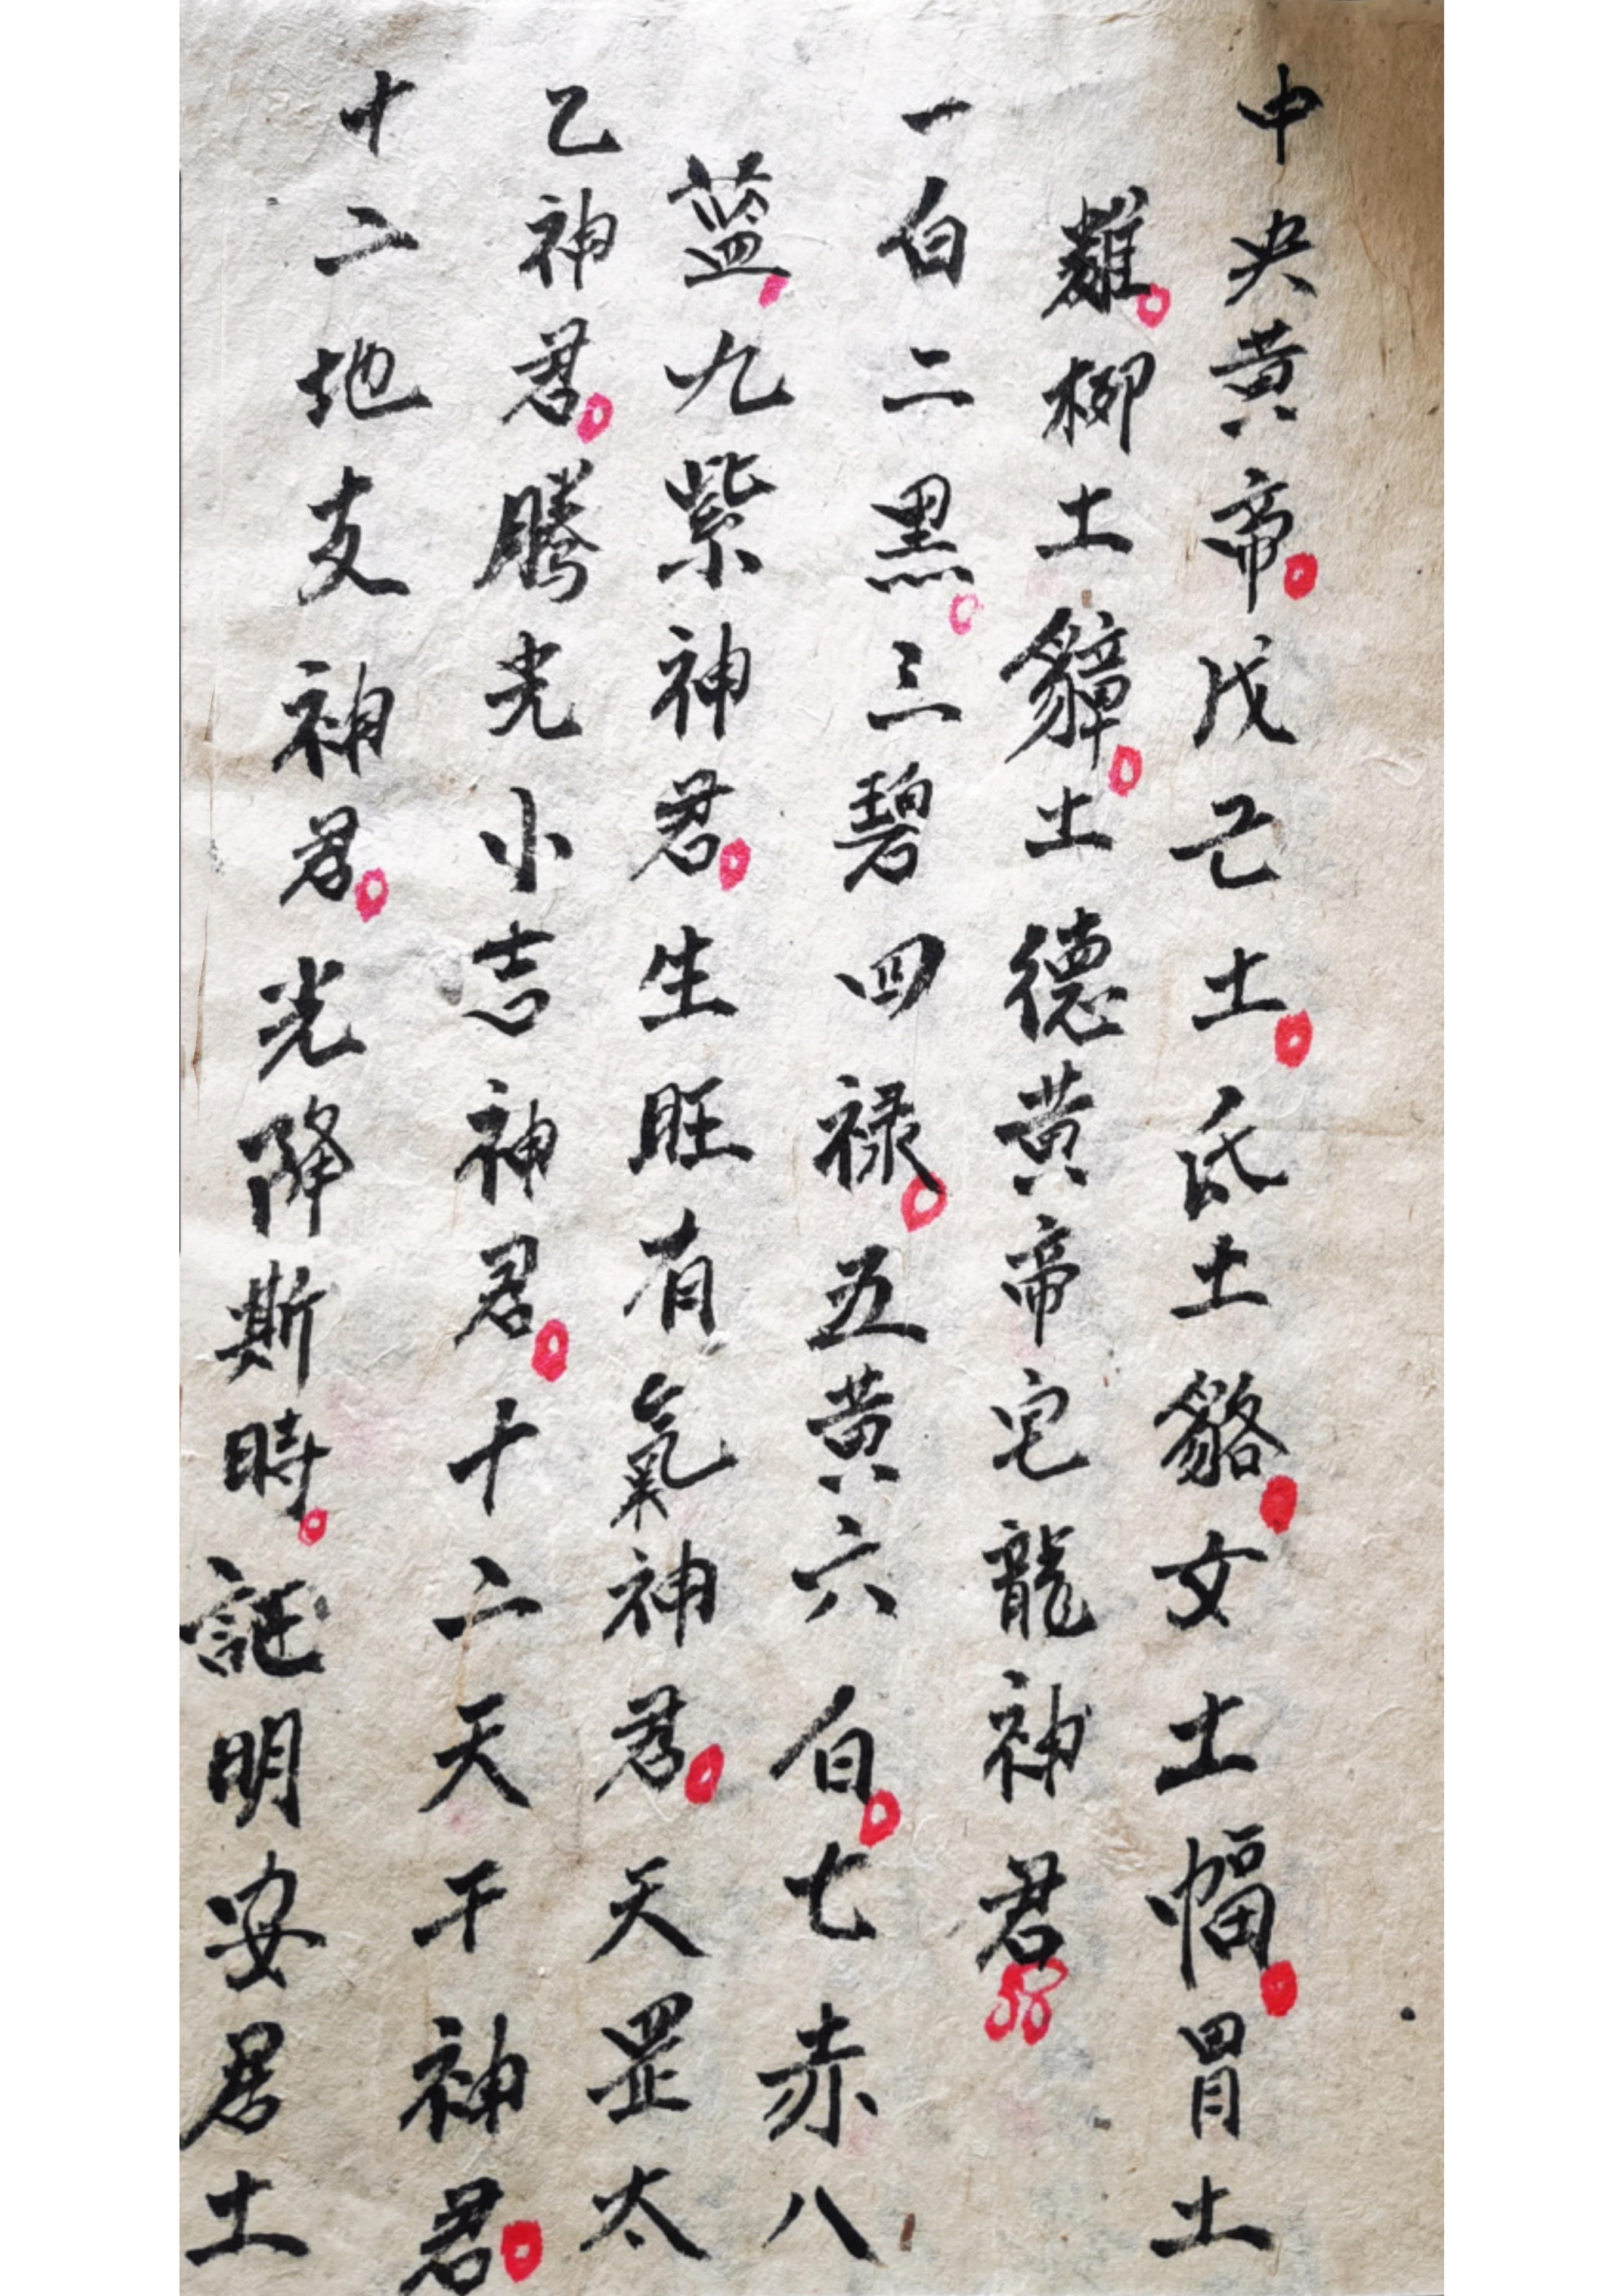 中央黄帝戊己土氐土貉女土幅胃土
雉柳土獐土德黄帝宅龍神君
一白二黑三碧四禄五黄六白七赤八
蓝九紫神君生旺有氣神君天罡太
乙神君腾光小志神君十二天干神君
十二地支神君光降斯時証明安君土